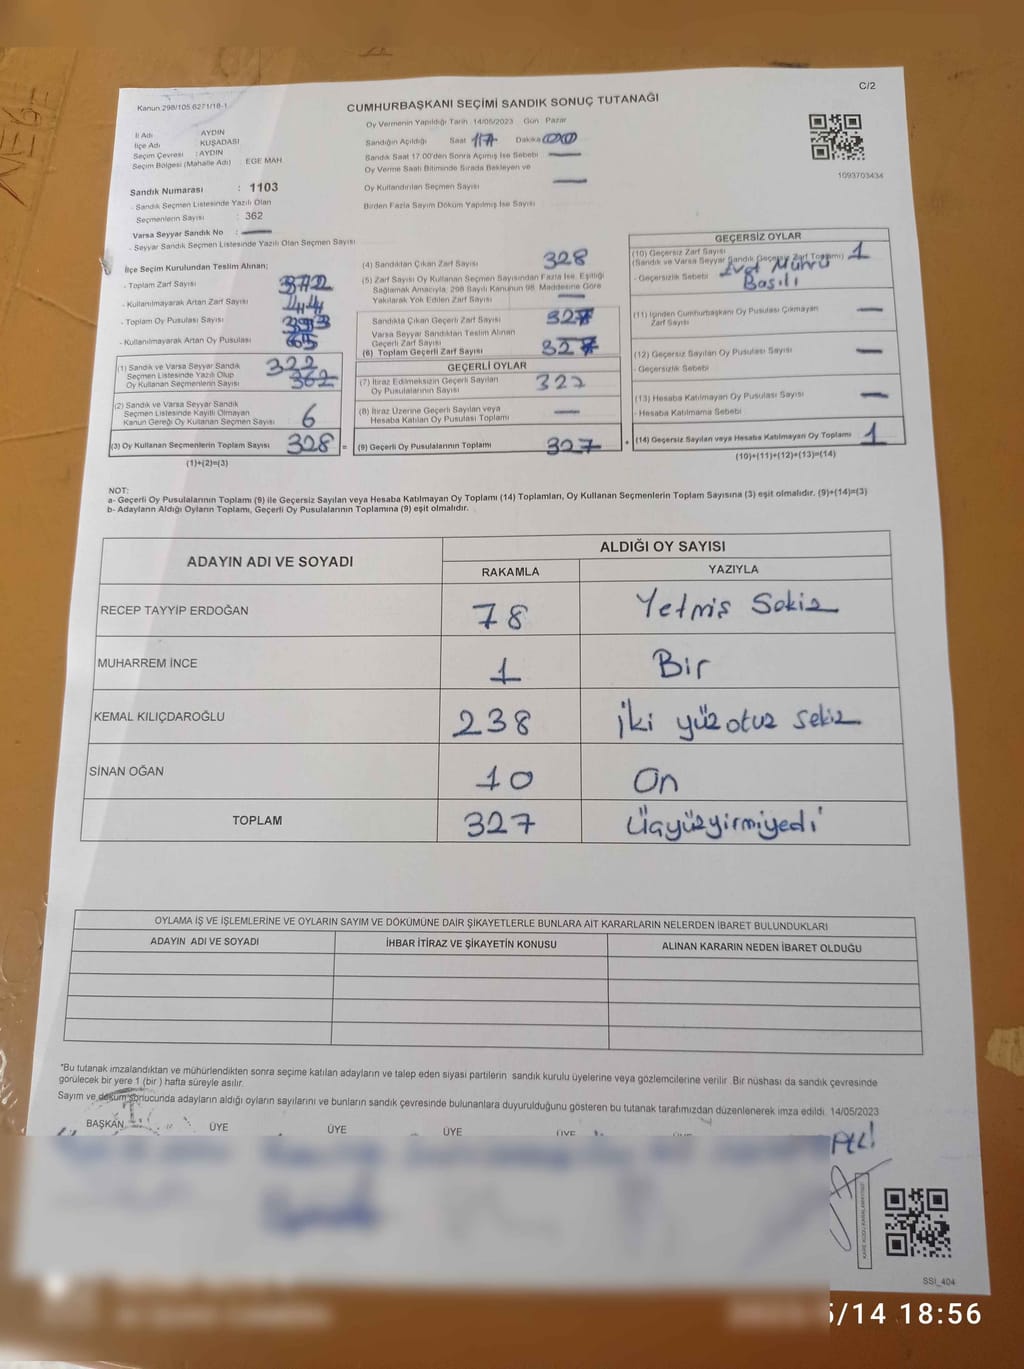 C/2
Kanun 298/105 6271/18-1
CUMHURBAŞKANI SEÇİMİ SANDIK SONUÇ TUTANAĞI
İl Adı AYDIN
İlçe Adı KUŞADASI
Seçim Çevresi : AYDIN
Seçim Bölgesi (Mahalle Adı) : EGE MAH
Sandık Numarası : 1103
- Sandık Seçmen Listesinde Yazılı Olan
Seçmenlerin Sayısı : 362
Varsa Seyyar Sandık No :
- Seyyar Sandık Seçmen Listesinde Yazılı Olan Seçmen Sayısı
Oy Vermenin Yapıldığı Tarih 14/05/2023 Gün Pazar
Sandığın Açıldığı Saat 17 Dakika 00
Sandık Saat 17.00'den Sonra Açımış İse Sebebi
Oy Verme Saati Bitiminde Sırada Bekleyen ve
Oy Kullandırılan Seçmen Sayısı
Birden Fazla Sayım Döküm Yapılmış İse Sayısı
1093703434
İlçe Seçim Kurulundan Teslim Alınan;
- Toplam Zarf Sayısı 372
- Kullanılmayarak Artan Zarf Sayısı 44
- Toplam Oy Pusulası Sayısı
- Kullanılmayarak Artan Oy Pusulası 65
(1) Sandık ve Varsa Seyyar Sandık
Seçmen Listesinde Yazılı Olup
Oy Kullanan Seçmenlerin Sayısı 322
362
(2) Sandık ve Varsa Seyyar Sandık
Seçmen Listesinde Kayıtlı Olmayan
Kanun Gereği Oy Kullanan Seçmen Sayısı 6
(3) Oy Kullanan Seçmenlerin Toplam Sayısı 328 =
(1)+(2)=(3)
(4) Sandıktan Çıkan Zarf Sayısı 328
(5) Zarf Sayısı Oy Kullanan Seçmen Sayısından Fazla İse, Eşitliği
Sağlamak Amacıyla, 298 Sayılı Kanunun 98. Maddesine Göre
Yakılarak Yok Edilen Zarf Sayısı
Sandıkta Çıkan Geçerli Zarf Sayısı 327
Varsa Seyyar Sandıktan Teslim Alınan
Geçerli Zarf Sayısı
(6) Toplam Geçerli Zarf Sayısı 327
GEÇERLİ OYLAR
(7) İtiraz Edilmeksizin Geçerli Sayılan
Oy Pusulalarının Sayısı 327
(8) İtiraz Üzerine Geçerli Sayılan veya
Hesaba Katılan Oy Pusulası Toplamı
(9) Geçerli Oy Pusulalarının Toplamı 327 +
GEÇERSİZ OYLAR
(10) Geçersiz Zarf Sayısı 1
(Sandık ve Varsa Seyyar Sandık Geçersiz Zarf Toplamı)
- Geçersizlik Sebebi Evet Mührü
Basılı
(11) İçinden Cumhurbaşkanı Oy Pusulası Çıkmayan
Zarf Sayısı
(12) Geçersiz Sayılan Oy Pusulası Sayısı
- Geçersizlik Sebebi
(13) Hesaba Katılmayan Oy Pusulası Sayısı
- Hesaba Katılmama Sebebi
(14) Geçersiz Sayılan veya Hesaba Katılmayan Oy Toplamı 1
(10)+(11)+(12)+(13)=(14)
NOT:
a- Geçerli Oy Pusulalarının Toplamı (9) ile Geçersiz Sayılan veya Hesaba Katılmayan Oy Toplamı (14) Toplamları, Oy Kullanan Seçmenlerin Toplam Sayısına (3) eşit olmalıdır. (9)+(14)=(3)
b- Adayların Aldığı Oyların Toplamı, Geçerli Oy Pusulalarının Toplamına (9) eşit olmalıdır.
ADAYIN ADI VE SOYADI ALDIĞI OY SAYISI
RAKAMLA YAZIYLA
RECEP TAYYİP ERDOĞAN 78 Yetmiş Sekiz
MUHARREM İNCE 1 Bir
KEMAL KILIÇDAROĞLU 238 iki yüz otuz sekiz
SİNAN OĞAN 10 On
TOPLAM 327 Üçyüzyirmiyedi
OYLAMA İŞ VE İŞLEMLERİNE VE OYLARIN SAYIM VE DÖKÜMÜNE DAİR ŞİKAYETLERLE BUNLARA AİT KARARLARIN NELERDEN İBARET BULUNDUKLARI
ADAYIN ADI VE SOYADI İHBAR İTİRAZ VE ŞİKAYETİN KONUSU ALINAN KARARIN NEDEN İBARET OLDUĞU
*Bu tutanak imzalandıktan ve mühürlendikten sonra seçime katılan adayların ve talep eden siyasi partilerin sandık kurulu üyelerine veya gözlemcilerine verilir. Bir nüshası da sandık çevresinde
görülecek bir yere 1 (bir) hafta süreyle asılır.
Sayım ve döküm sonucunda adayların aldığı oyların sayılarını ve bunların sandık çevresinde bulunanlara duyurulduğunu gösteren bu tutanak tarafımızdan düzenlenerek imza edildi. 14/05/2023
BAŞKAN ÜYE ÜYE ÜYE ÜYE
SSI_404
5/14 18:56